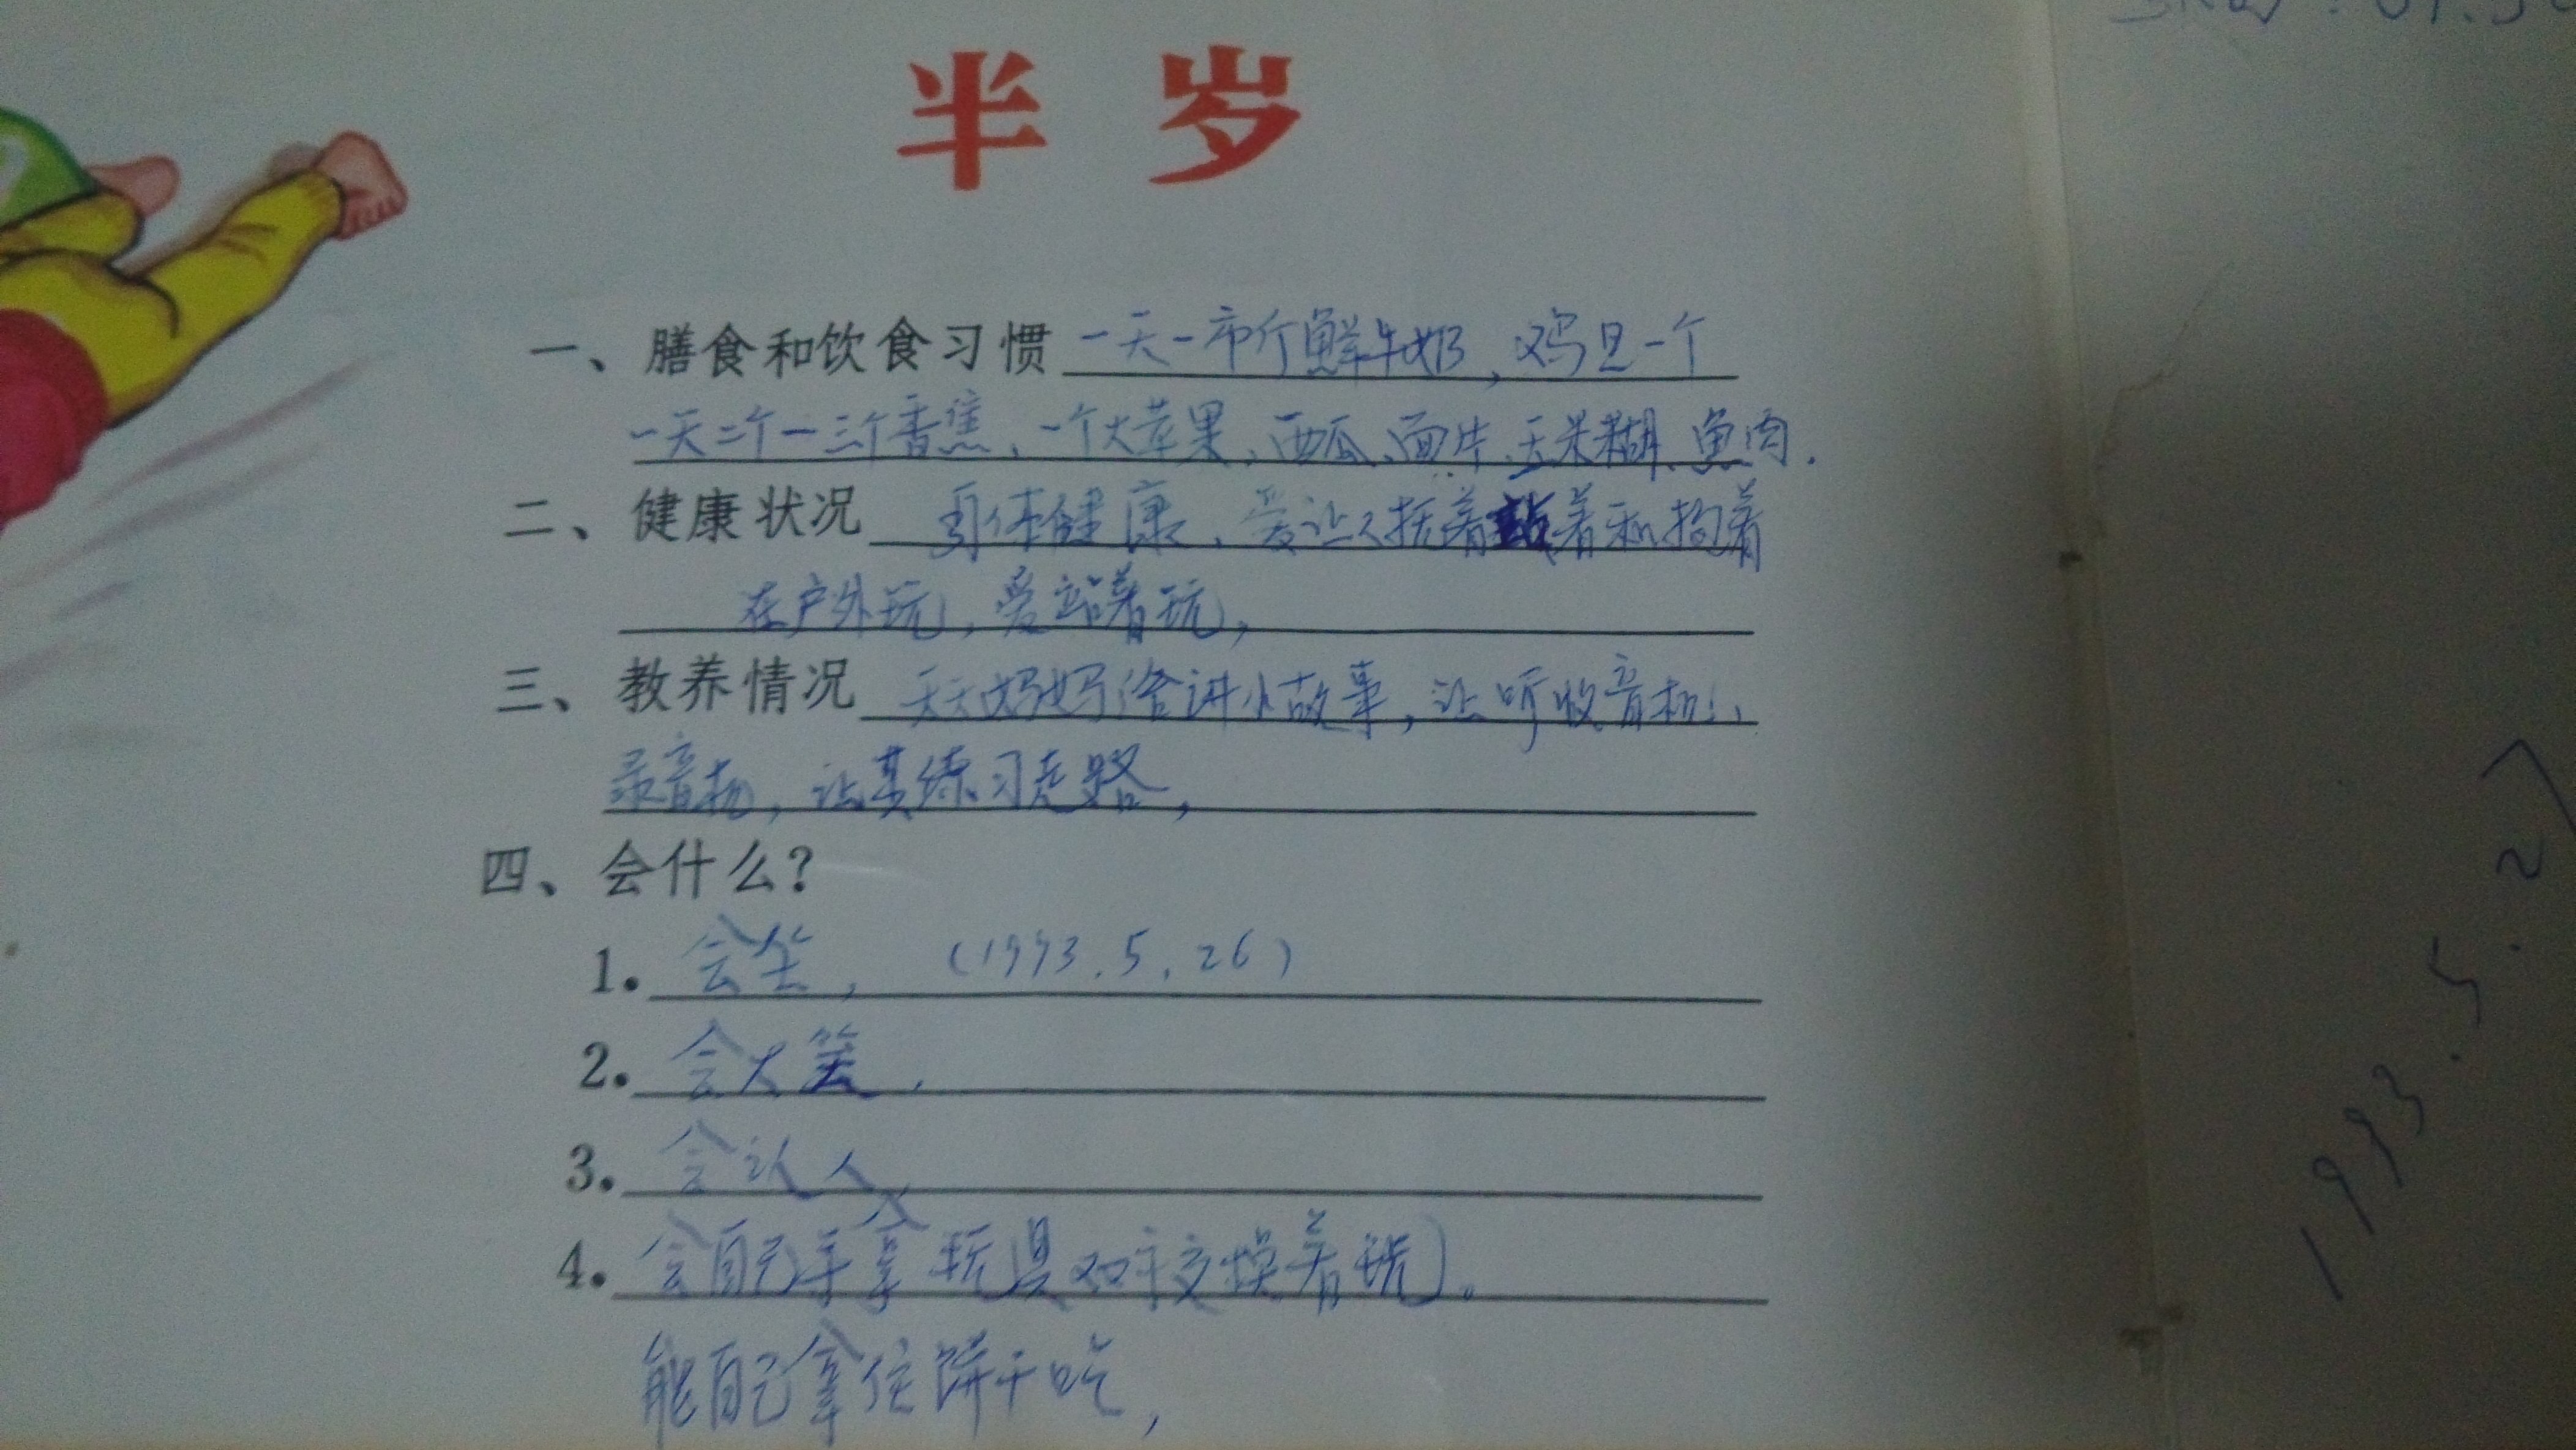 半岁
一、膳食和饮食习惯 一天一市斤鲜牛奶，鸡旦一个
一天二个一三个香焦、一个大苹果、西瓜、面片、玉米糊、鱼肉.
二、健康状况 身体健康、爱让人抚着站着和抱着
在户外玩，爱站着玩，
三、教养情况 天天妈妈给讲小故事，让听收音机、
录音机，让其练习走路，
四、会什么？
1. 会坐， (1993.5.26)
2. 会大笑，
3. 会认人
4. 会自己手拿玩具双手交换着玩。
能自己拿住饼干吃，
1993.5.27